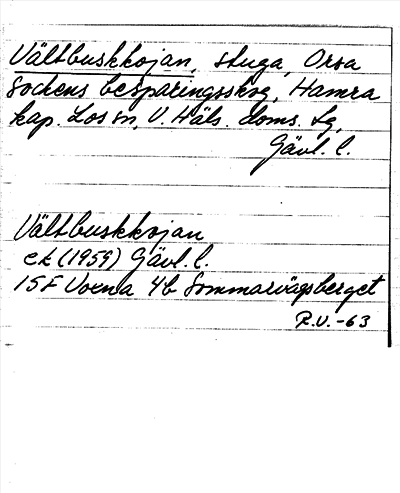 Vältbuskkojan, stuga, Orsa
Sockens besparingsskog, Hamra
kap. Los sn, V. Häls. doms. lg,
Gävl. l.
Vältbuskkojan
ek (1959) Gävl. l.
15F Voxna 4b Sommarvägsberget
R.V.-63